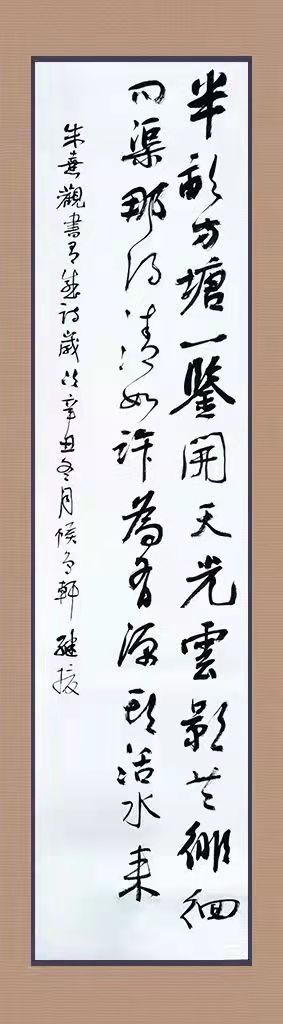 半畝方塘一鑒開天光雲影共徘徊
問渠那得清如許為有源頭活水来
朱熹觀書有感詩歲次辛丑冬月候鳥軒